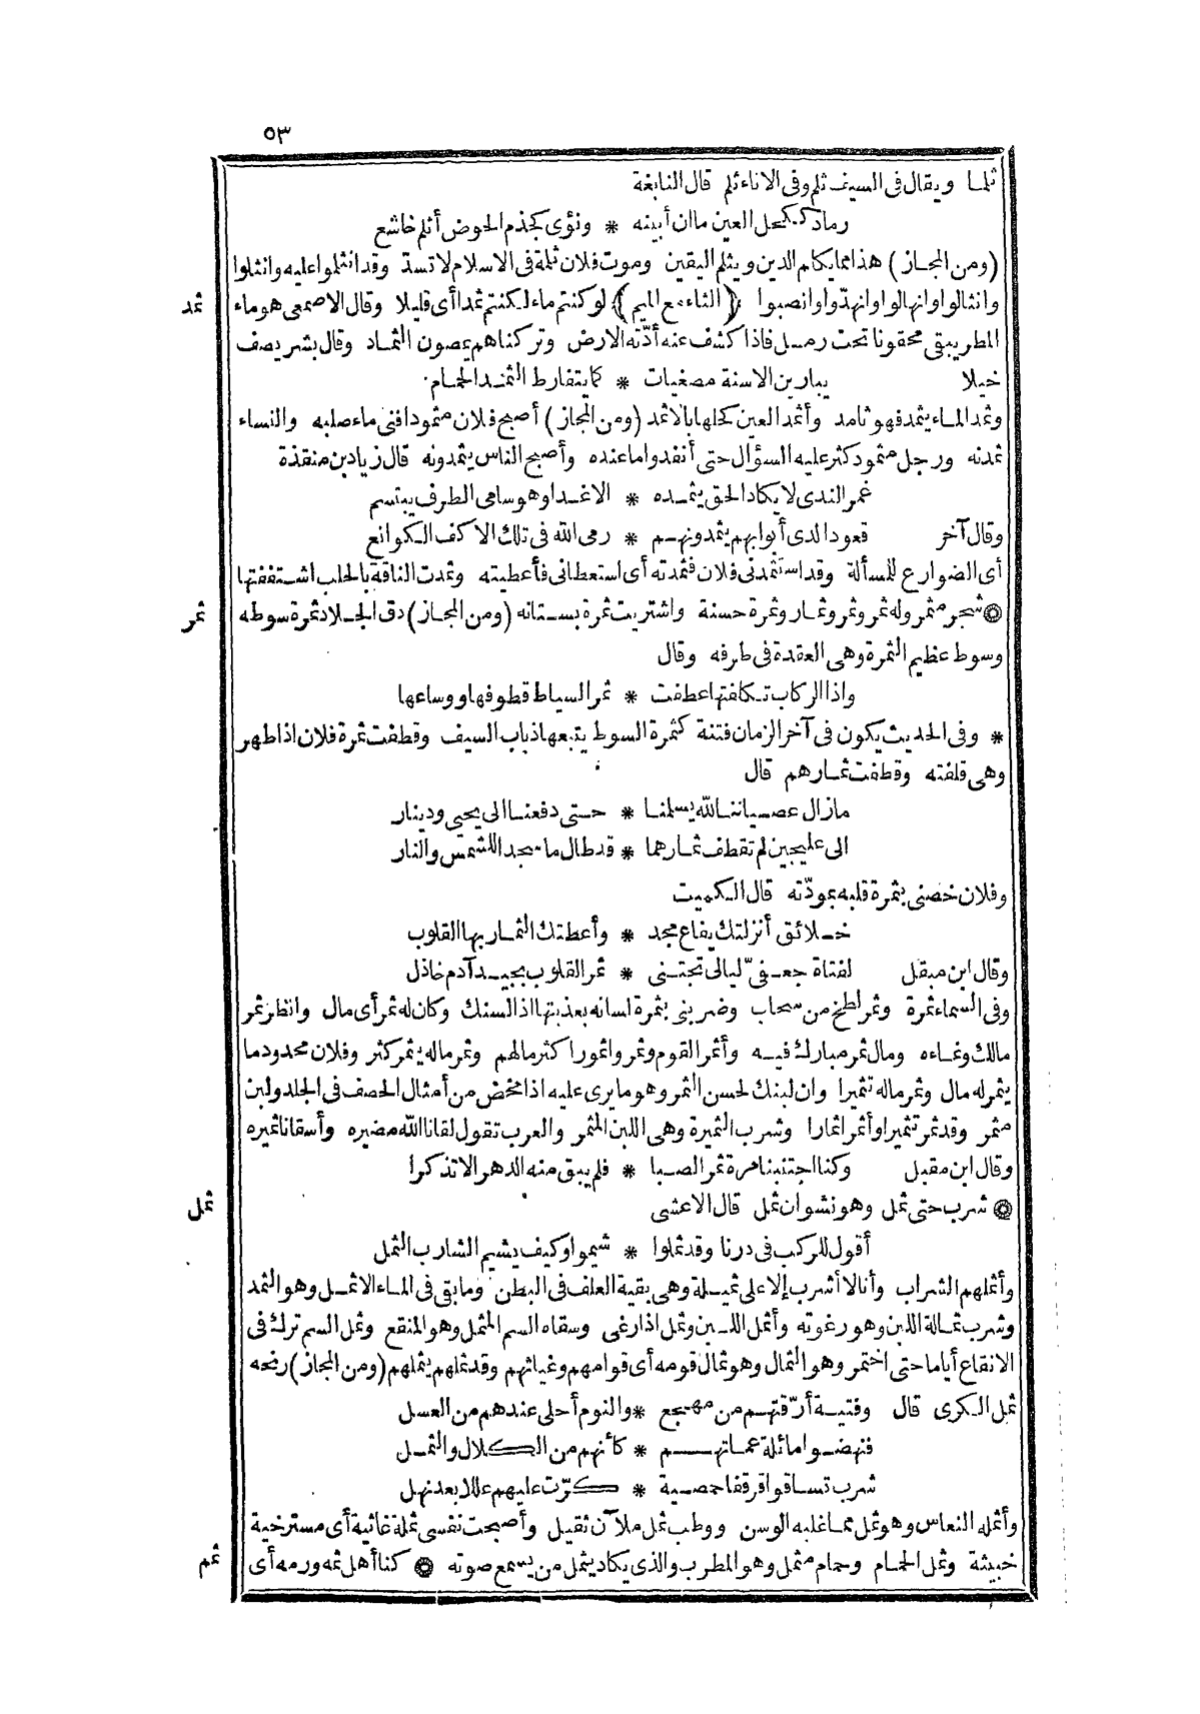 ٥٣
ثلما ويقال فى السيف ثلم وفى الاناء ثلم قال النابغة
رماد ككحل العين ما ان أبينه * ونؤى كجذم الحوض أثلم خاشع
(ومن المجاز) هذا مما يكلم الدين ويثلم اليقين وموت فلان ثلمة فى الاسلام لا تسدّ وقد انثلموا عليه وانثلوا
وانثالوا وانهالوا وانهدّوا وانصبوا ﴿الثاء مع الميم﴾ لو كنتم ماء لكنتم ثمدا أى قليلا وقال الاصمعى هو ماء
ثمد
المطر يبقى محقونا تحت رمل فاذا كشف عنه أدّته الارض وتركناهم يمصون الثماد وقال بشر يصف
خيلا يبارين الاسنة مصغيات * كما يتفارط الثمد الحمام
وثمد الماء يثمد فهو ثامد وأثمد العين كحلها بالاثمد (ومن المجاز) أصبح فلان مثمودا فنى ماء صلبه والنساء
ثمدنه ورجل مثمود كثر عليه السؤال حتى أنفدوا ما عنده وأصبح الناس يثمدونه قال زياد بن منقذة
غمر الندى لا يكاد الحق يثمده * الا غدا وهو سامى الطرف يبتسم
وقال آخر قعودا لدى أبوابهم يثمدونهم * رمى الله فى تلك الاكف الكوانع
أى الضوارع للمسألة وقد استثمدنى فلان فثمدته أى استعطانى فأعطيته وثمدت الناقة بالحلب اشتففتها
۞ شجر مثمر وله ثمر وثمر وثمار وثمرة حسنة واشتريت ثمرة بستانه (ومن المجاز) دق الجلاد ثمرة سوطه
ثمر
وسوط عظيم الثمرة وهى العقدة فى طرفه وقال
واذا الركاب تكلفتها عطفت * ثمر السياط قطوفها ووساعها
* وفى الحديث يكون فى آخر الزمان فتنة كثمرة السوط يتبعها ذباب السيف وقطفت ثمرة فلان اذا طهر
وهى قلفته وقطفت ثمارهم قال
مازال عصياننا لله يسلمنا * حتى دفعنا الى يحيى ودينار
الى عليجين لم تقطف ثمارهما * قد طال ما سجدا للشمس والنار
وفلان خصنى بثمرة قلبه بمودّته قال الكميت
خلائق أنزلتك يفاع مجد * وأعطتك الثمار بها القلوب
وقال ابن مقبل لفتاة جعفىّ ليالى تجتنى * ثمر القلوب بجيد آدم خاذل
وفى السماء ثمرة وثمر لطخ من سحاب وضربنى بثمرة لسانه بعذبتها اذا لسنك وكان له ثمر أى مال وانظر ثمر
مالك ونماءه ومال ثمر مبارك فيه وأثمر القوم وثمروا ثمورا كثر مالهم وثمر ماله يثمر كثر وفلان محدود ما
يثمر له مال وثمر ماله تثميرا وان لبنك لحسن الثمر وهو ما يرى عليه اذا مخض من أمثال الحصف فى الجلد ولبن
مثمر وقد ثمر تثميرا وأثمر اثمارا وشرب الثميرة وهى اللبن المثمر والعرب تقول لقانا الله مضيره وأسقانا ثميره
وقال ابن مقبل وكنا اجتنينا مرة ثمر الصبا * فلم يبق منه الدهر الا تذكرا
۞ شرب حتى ثمل وهو نشوان ثمل قال الاعشى
ثمل
أقول للركب فى درنا وقد ثملوا * شيموا وكيف يشيم الشارب الثمل
وأثملهم الشراب وأنا لا أشرب إلا على ثميلة وهى بقية العلف فى البطن وما بقى فى الماء الا ثمل وهو الثمد
وشرب ثمالة اللبن وهو رغوته وأثمل اللبن وثمل اذا رغى وسقاه السم المثمل وهو المنقع وثمل السم ترك فى
الانقاع أياما حتى اختمر وهو الثمال وهو ثمال قومه أى قوامهم وغياثهم وقد ثملهم يثملهم (ومن المجاز) رنحه
ثمل الكرى قال وفتية أرّقتهم من مهجع * والنوم أحلى عندهم من العسل
فنهضوا مائلة عماتهم * كأنهم من الكلال والثمل
شرب تساقوا قرقفا حمصية * كرّت عليهم عللا بعد نهل
وأثمله النعاس وهو ثمل مما غلبه الوسن ووطب ثمل ملآن ثقيل وأصبحت نفسى ثملة غاثية أى مسترخية
خبيثة وثمل الحمام وحمام مثمل وهو المطرب والذى يكاد يثمل من يسمع صوته ۞ كنا أهل ثمه ورمه أى
ثمم